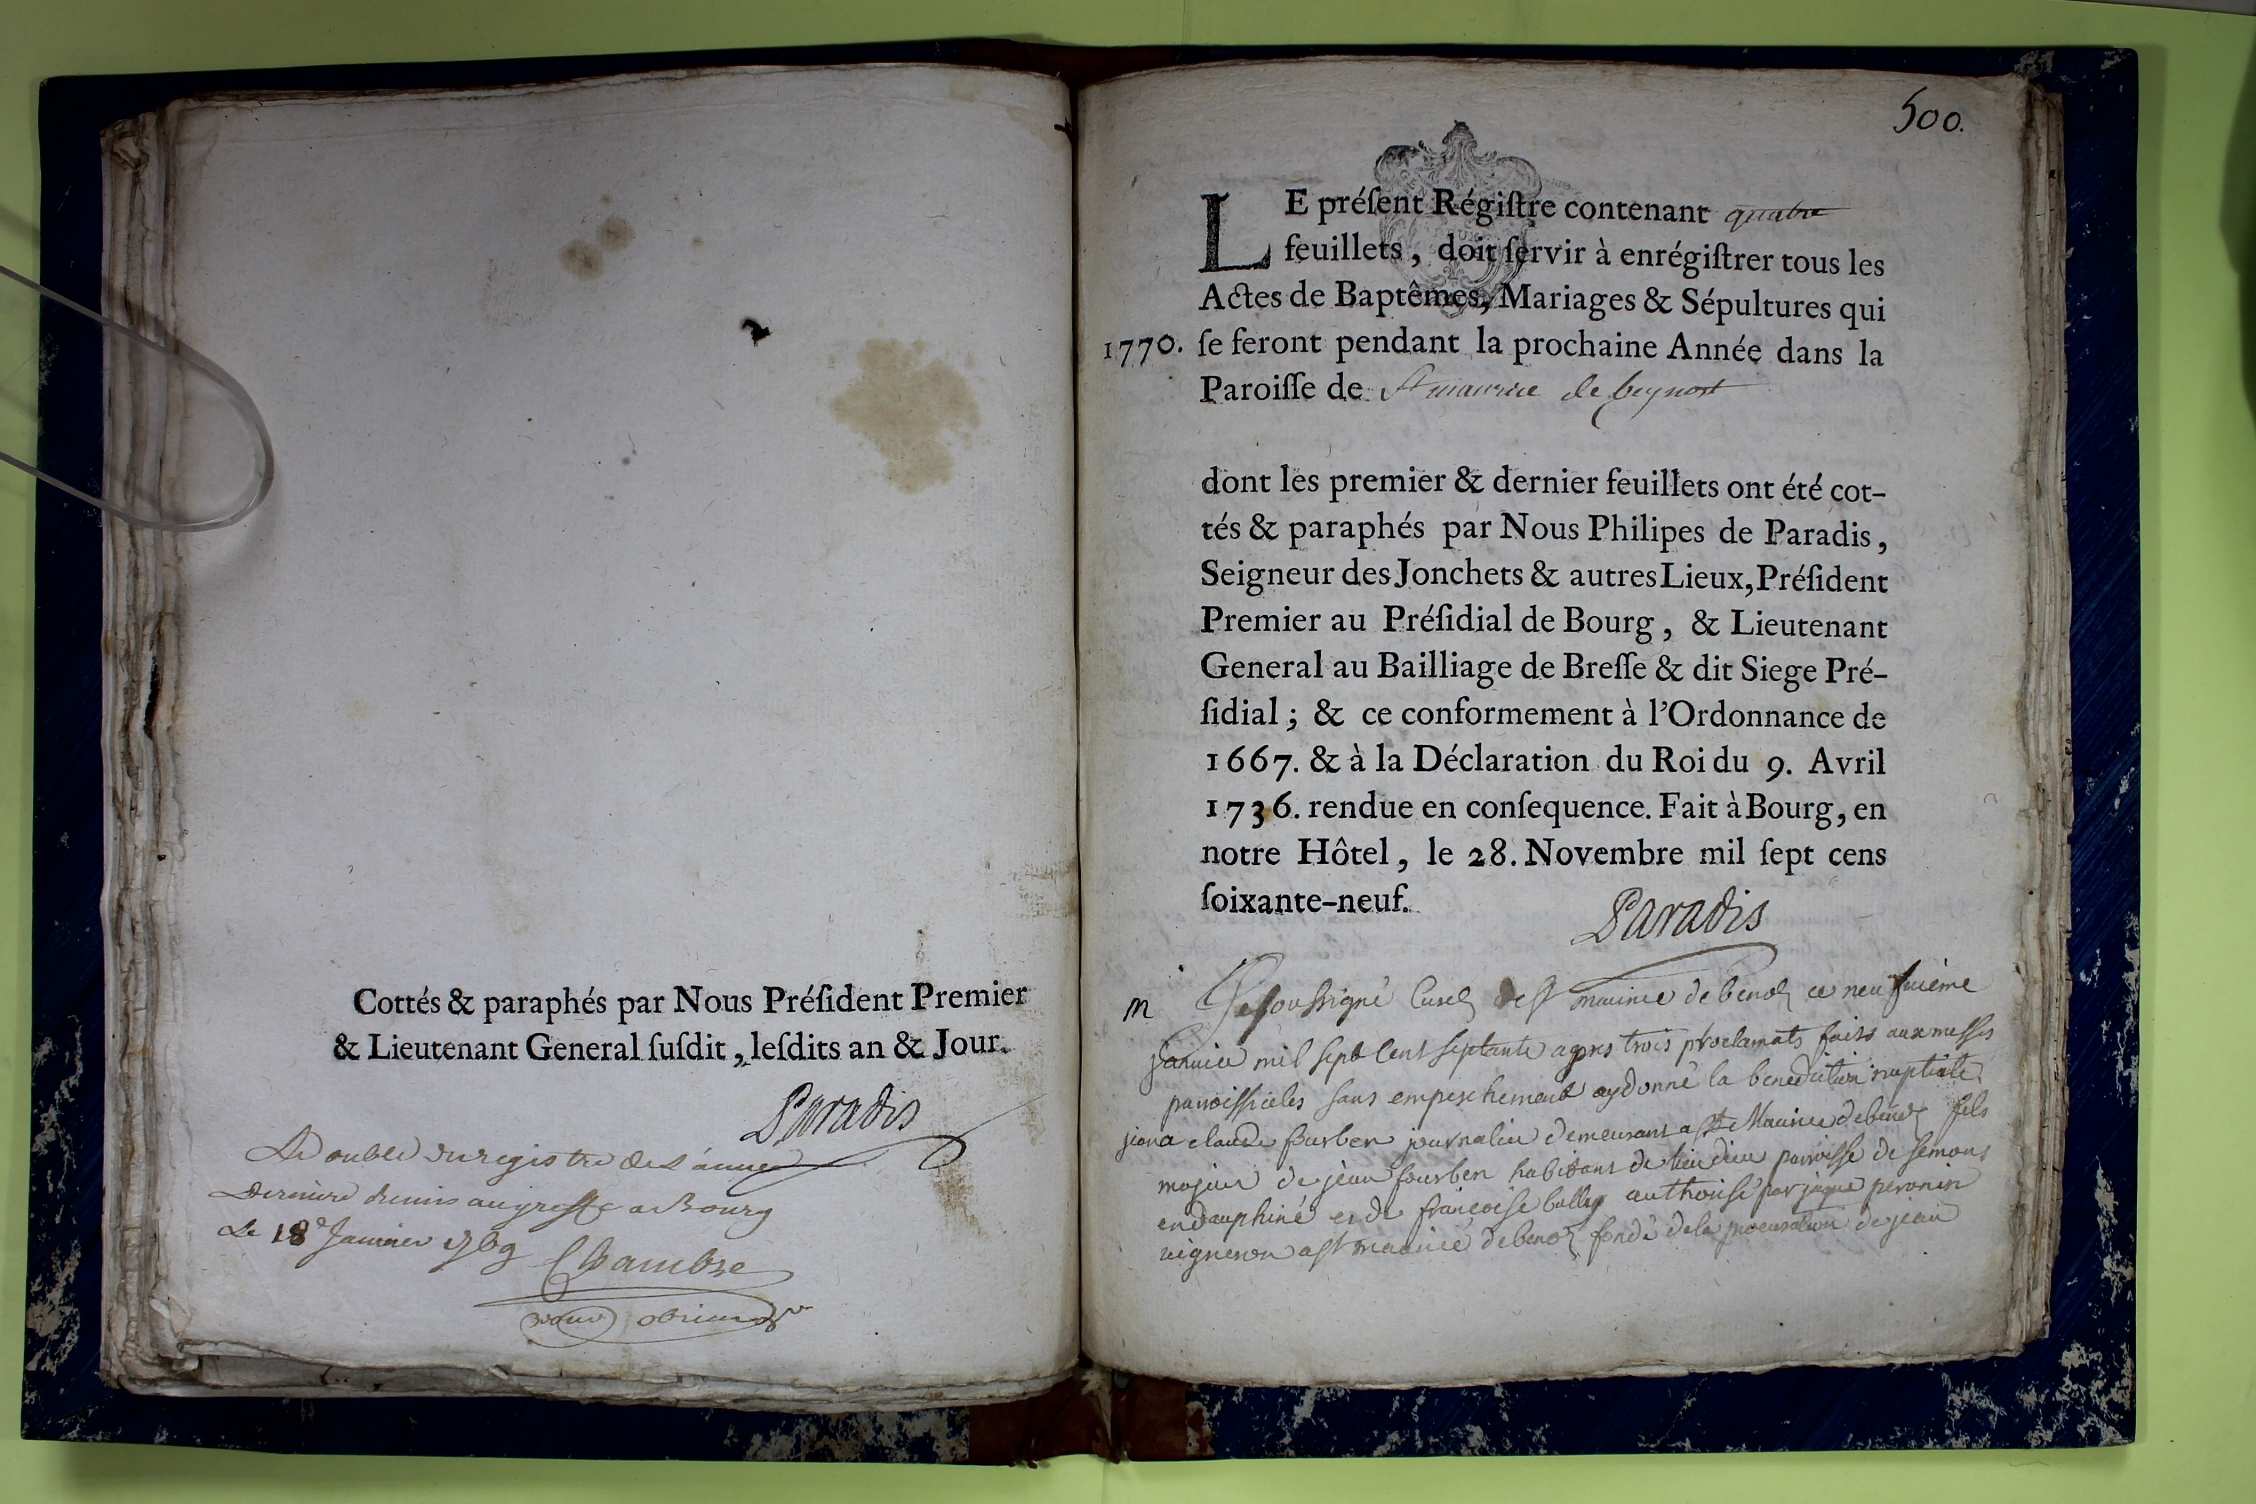 Cottés & paraphés par Nous Préſident Premier
& Lieutenant General ſuſdit, leſdits an & Jour.
Paradis
Le double du registre de l'année
derniere remis au greffe a Bourg
Le 18e Janvier 1769 Chambre
500.
LE préſent Régiſtre contenant quatre
feuillets, doit ſervir à enrégiſtrer tous les
Actes de Baptêmes, Mariages & Sépultures qui
1770. ſe feront pendant la prochaine Année dans la
Paroiſſe de St maurice de beynost
dont les premier & dernier feuillets ont été cot-
tés & paraphés par Nous Philipes de Paradis,
Seigneur des Jonchets & autres Lieux, Préſident
Premier au Préſidial de Bourg, & Lieutenant
General au Bailliage de Breſſe & dit Siege Pré-
ſidial; & ce conformement à l'Ordonnance de
1667. & à la Déclaration du Roi du 9. Avril
1736. rendue en conſequence. Fait à Bourg, en
notre Hôtel, le 28. Novembre mil ſept cens
ſoixante-neuf.
Paradis
m Je soussigné Curé de St maurice de benoz ce neufvieme
janvier mil sept cent septante apres trois proclamats faits aux messes
parroissieles sans empeschement ay donné la benediction nuptiale
a claude Furben journalier demeurant a St Maurice de benoz fils
majeur de jean fourben habitant de lieu dieu parroisse de semons
en dauphiné et de francoise bally authorisé par jaque peronin
vigneron a St maurice de benoz fondé de la procuration de jean